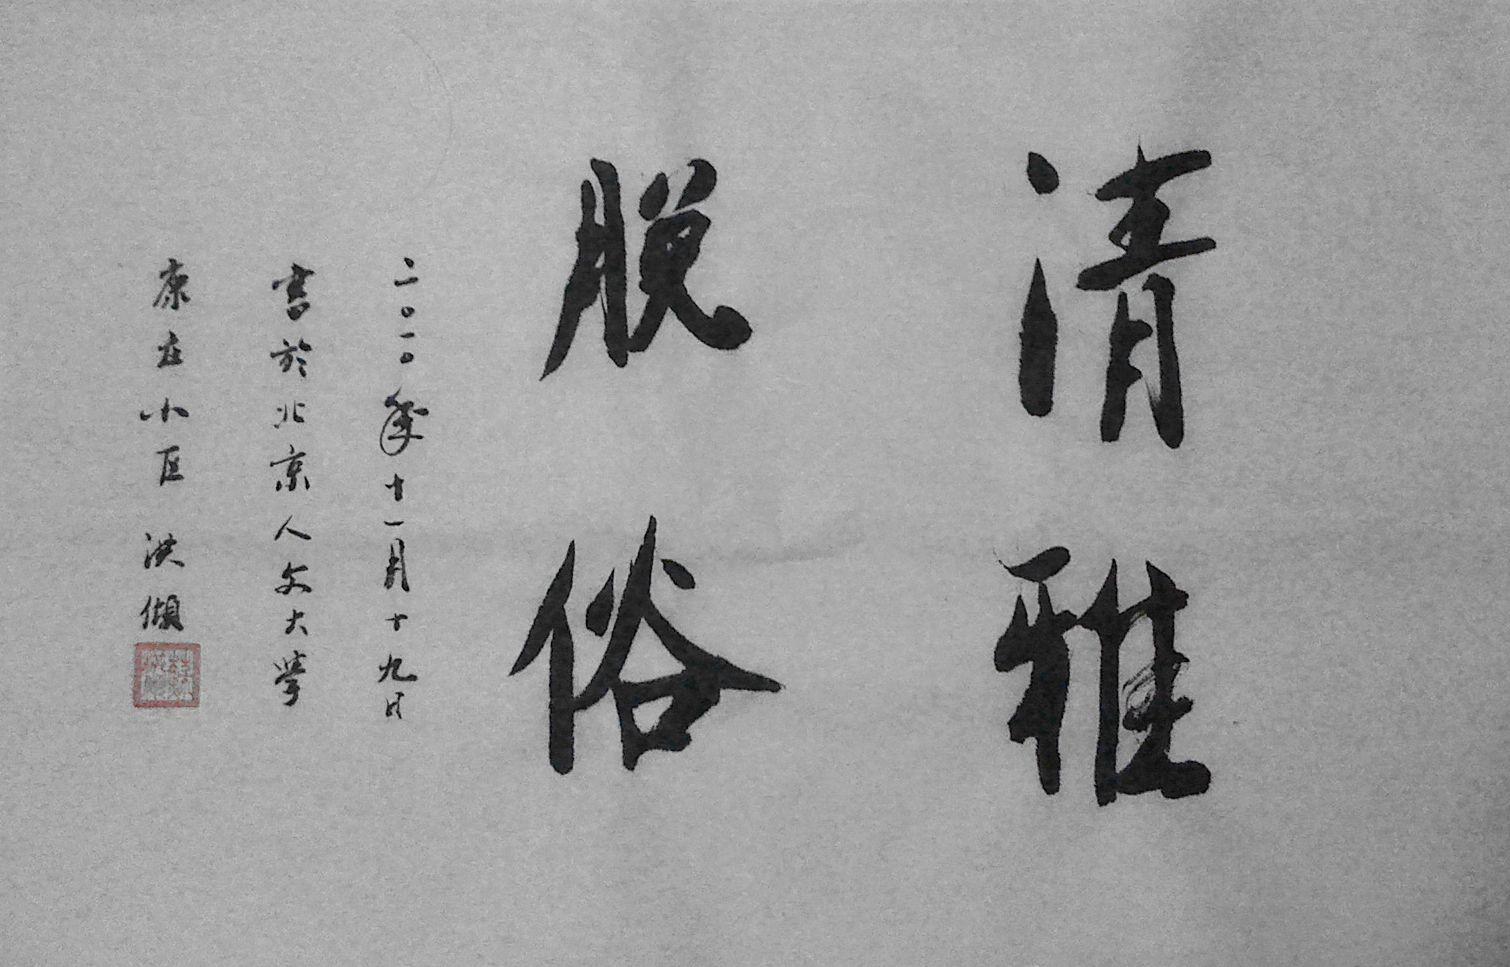 清雅
脱俗
二〇一〇年十一月十九日
書於北京人文大學
康庄小区 洪傾